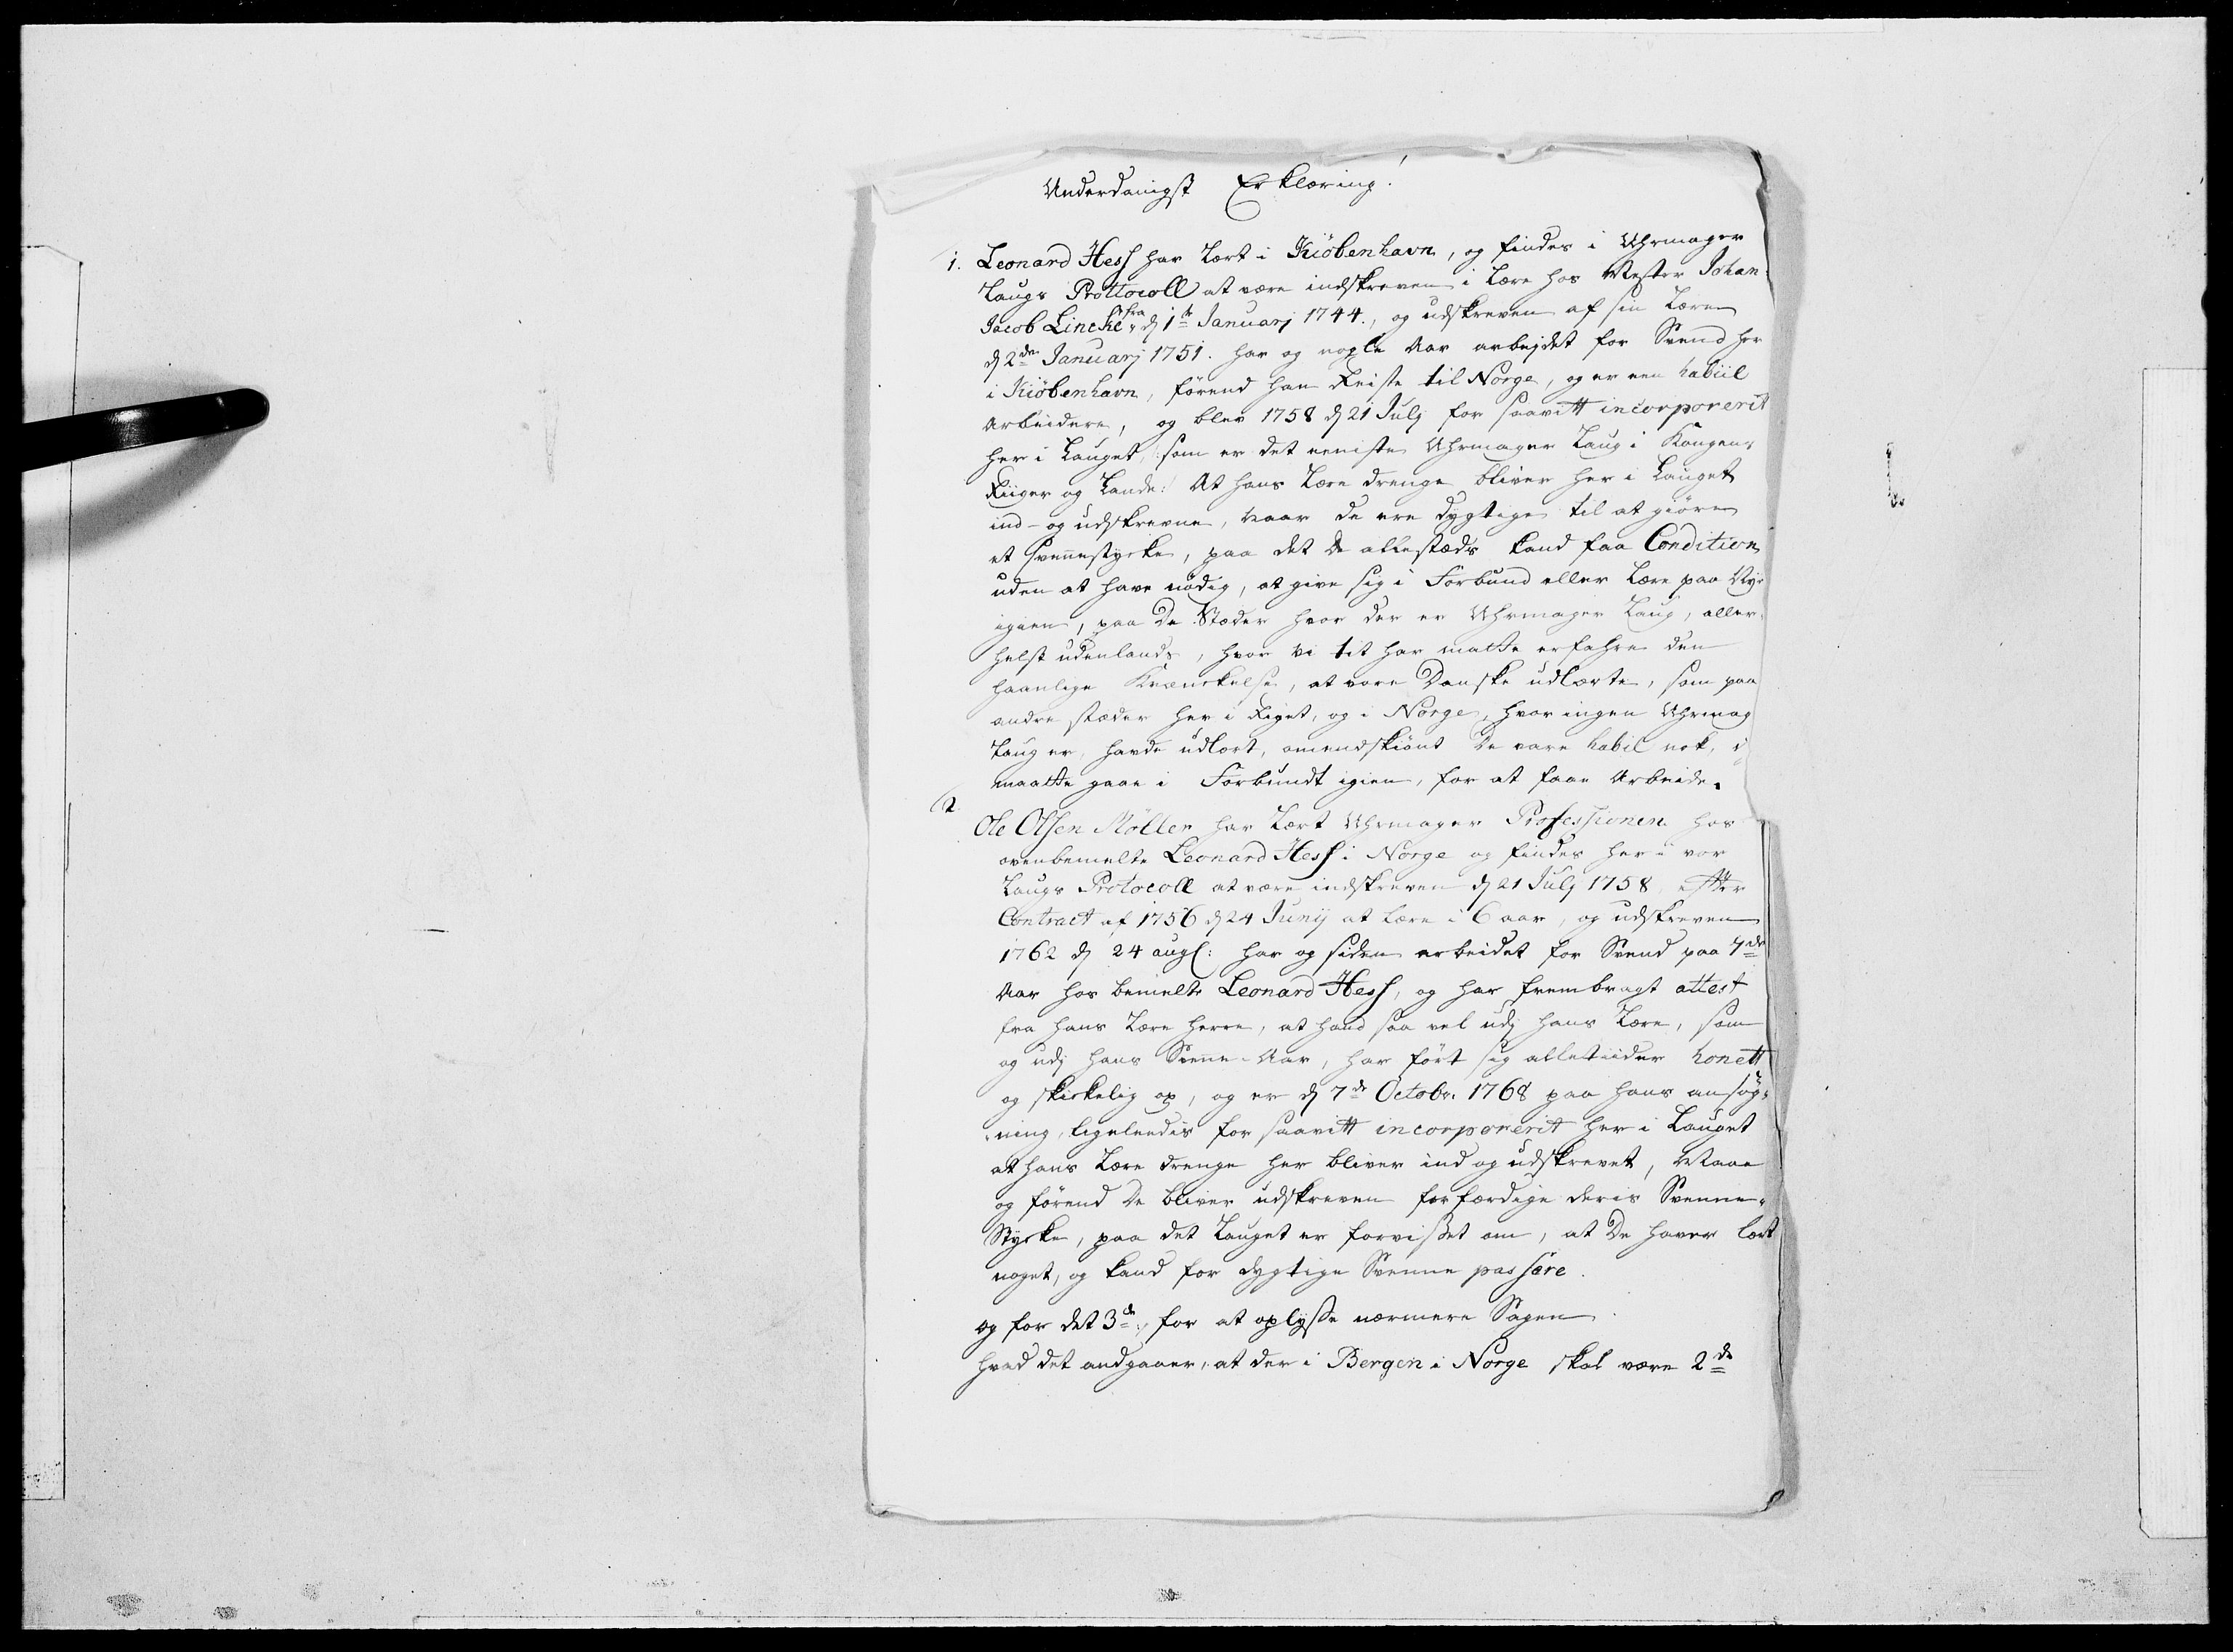 Underdanigst Erklæring!
1. Leonard Hess har Lært i Kiöbenhavn, og findes i Uhrmager
Laugs Prottocoll at være indskreven i Lære hos Mester Johan
Jacob Lincke fra d 1te Januarj 1744., og udskreven af sin Lære
d 2den Januarj 1751. har og nogle Aar arbejdet for Svend her
i Kiöbenhavn, förend han Reiste til Norge, og er een habiil
Arbeidere, og blev 1758 d 21 Julj for saavitt incorporerit
her i Lauget, som er det eeniste Uhrmager Laug i Kongens
Riiger og Lande: At hans Lære drenge bliver her i Lauget
ind- og udskrevne, naar de ere dygtige til at giöre
et svennestycke, paa det De allestæds kand faa Condition
uden at have nödig, at give sig i Forbund eller Lære paa Nye
igien, paa De Stæder hvor der er Uhrmager Laug, aller-
helst udenlands, hvor vi tit har matte erfahre den
haanlige Krænckelse, at vore Danske udlærte, som paa
andre stæder her i Riget, og i Norge, hvor ingen Uhrmag
Laug er, havde udlært, omendskiönt De vare habil nok,
maatte gaae i Forbundt igien, for at faae Arbeide.
2
Ole Olsen Möller har Lært Uhrmager Professionen hos
ovenbemelte Leonard Hess i Norge og findes her i vor
Laugs Protocoll at være indskreven d 21 Julj 1758, efter
Contract af 1756 d 24 Junij at Lære i 6 aar, og udskreven
1762 d 24 aug: har og siden arbeidet for Svend paa 7de
Aar hos bemelte Leonard Hess, og har frembragt attest
fra hans Lære herre, at hand saa vel udj hans Lære, som
og udj hans Svenne-Aar, har fört sig alletiider honett
og skickelig op, og er d 7de Octobr. 1768 paa hans ansög-
ning, ligeleedis for saavitt incorporerit her i Lauget
at hans Lære drenge her bliver ind og udskrevet, Maae
og förend De bliver udskreven forfærdige deris Svenne-
Stycke, paa det Lauget er forvisset om, at De haver lært
noget, og kand for dygtige Svenne passere.
og for det 3de, for at oplysse nærmere Sagen
hvad det andgaaer, at der i Bergen i Norge skal være 2de